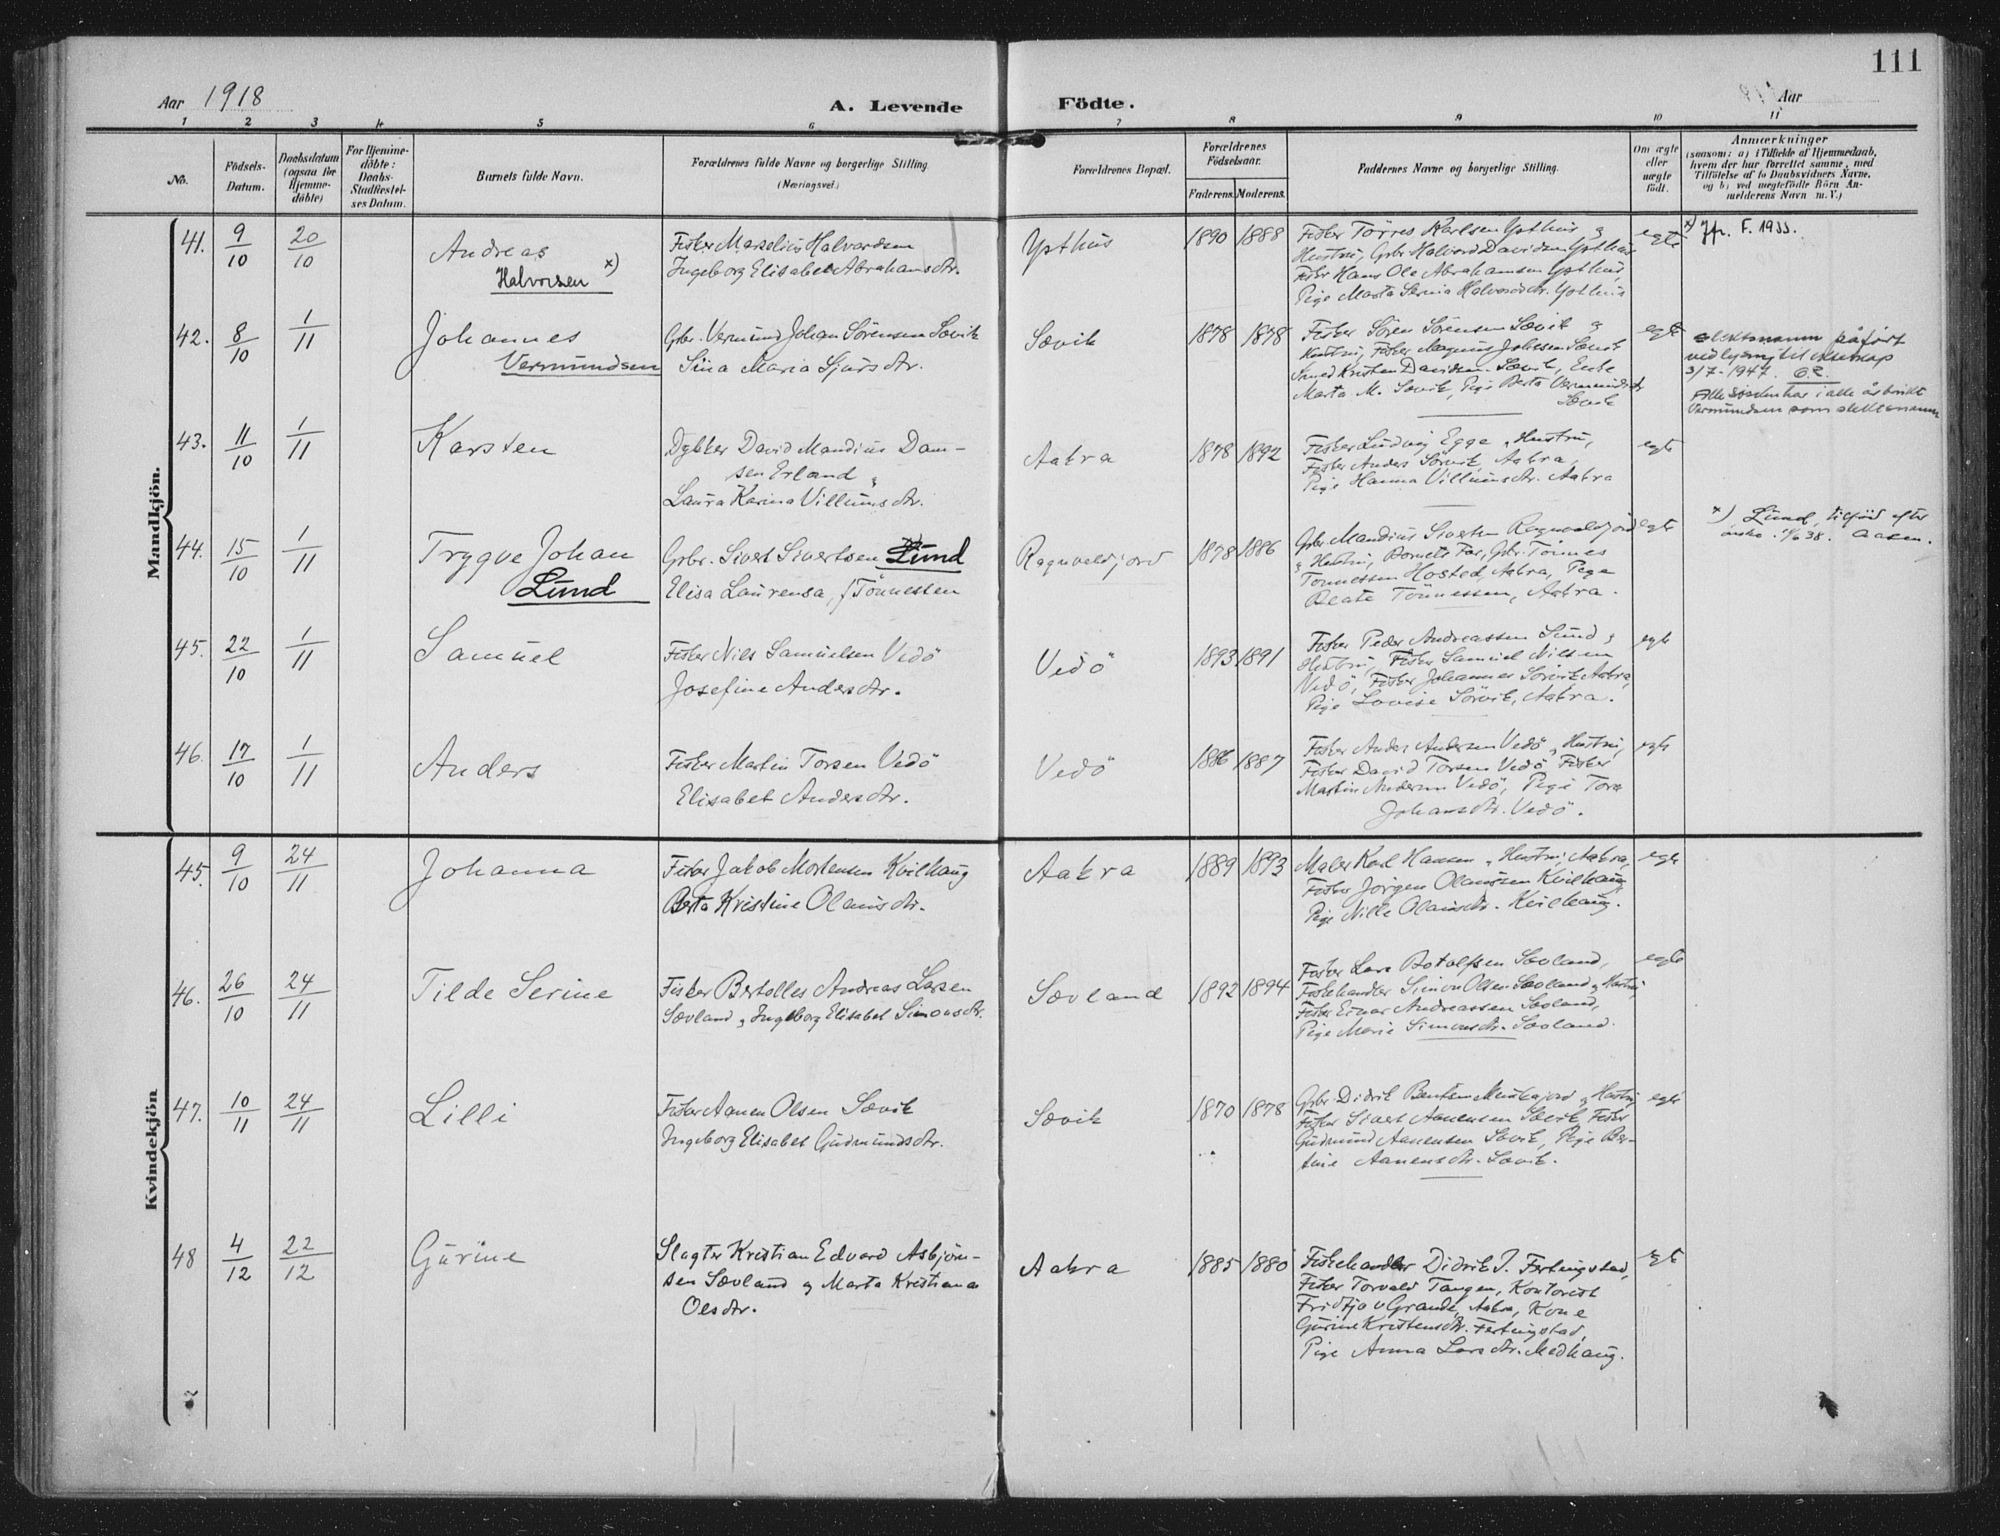 111
Aar 1918
A. Levende Födte.
Aar
1 2 3 4 5 6 7 8 9 10 11
No.
Födsels-
Datum.
Daabsdatum
(ogsaa for
Hjemme-
döbte)
For Hjemme-
döbte:
Daabs-
Stadfæstel-
ses Datum.
Barnets fulde Navn.
Forældrenes fulde Navne og borgerlige Stilling.
(Næringsvei.)
Forældrenes Bopæl.
Forældrenes
Födselsaar.
Faderens. Moderens.
Faddernes Navne og borgerlige Stilling.
Om ægte
eller
uægte
födt.
Anmærkninger
(saasom: a) i Tilfælde af Hjemmedaab,
hvem der har forrettet samme, med
Tilföielse af to Daabsvidners Navne,
og b) ved uægtefödte Börn An-
melderens Navn m. V.)
Mandkjön.
41. 9/10 20/10
Andreas
Halvorsen x)
Fisker Marselius Halvardsen
Ingeborg Elisabet Abrahamsdtr.
Ypthus
1890 1888
Fisker Törres Karlsen Ypthus og
Hustru, Gbr. Halvard Davidsen Ypthus
Fisker Hans Ole Abrahamsen Ypthus,
Pige Marta Serina Halvardsdtr. Ypthus
egte
x) Jfr. F. 1933.
42. 8/10 1/11
Johannes
Vermundsen
Gbr. Vermund Johan Sörensen Sævik
Sina Maria Sjursdtr.
Sævik
1878 1878
Fisker Sören Sörensen Sævik og
Hustru, Fisker Magnus Johnsen Sævik
Smed Kristen Davidsen Sævik, Enke
Marta M. Sævik, Pige Berta Vermundsdtr
Sævik
egte
slektsnamn påført
3/7-1947.
Alle søsken har i alle år brukt
Vermundsen som slektsnamn
43. 11/10 1/11
Karsten
Dykker David Mandius Dam-
sen Erland og
Laura Karina Villumsdtr.
Aakra
1878 1892
Fisker Ludvig Egge og Hustru,
Fisker Anders Sörvik, Aakra,
Pige Hanna Villumsdtr. Aakra
egte
44. 15/10 1/11
Trygve Johan
Lund
Gbr. Sivert Sivertsen Lund
Elisa Laurensa, f. Tönnessen
Ragnvaldjord
1878 1886
Gbr. Mandius Sivertsen Ragnvaldjord
og Hustru, Barnets Far, Gbr. Tönnes
Tönnessen Hosted, Aakra, Pige
Beate Tönnessen, Aakra.
egte
x) Lund, tilføid efter
ønske. 38. Aasen.
45. 22/10 1/11
Samuel
Fisker Nils Samuelsen Vedö
Josefine Andersdtr.
Vedö
1893 1891
Fisker Peder Andreassen Sund og
Hustru, Fisker Samuel Nilsen
Vedö, Fisker Johannes Sörvik Aakra,
Pige Lovise Sörvik, Aakra.
egte
46. 17/10 1/11
Anders
Fisker Martin Torsen Vedö
Elisabet Andersdtr.
Vedö
1886 1887
Fisker Anders Andersen Vedö og Hustru,
Fisker David Torsen Vedö Fisker
Martin Andersen Vedö, Pige Tora
Johansdtr. Vedö.
egte
Kvindekjön
45. 9/10 24/11
Johanna
Fisker Jakob Mortensen Kvilhaug
Berta Kristine Olausdtr.
Aakra
1889 1893
Maler Karl Hansen og Hustru, Aakra,
Fisker Jörgen Olaussen Kvilhaug,
Pige Nille Olausdtr. Kvilhaug.
egte
46. 26/10 24/11
Tilde Serine
Fisker Bertolles Andreas Larsen
Sævland og Ingeborg Elisabet Simonsdtr.
Sævland
1892 1894
Fisker Lars Botolfsen Sævland,
Fiskehandler Simon Olsen Sævland og Hustru,
Fisker Einar Andreassen Sævland,
Pige Marie Simonsdtr. Sævland.
egte
47. 10/11 24/11
Lilli
Fisker Aanen Olsen Sævik
Ingeborg Elisabet Gudmundsdtr.
Sævik
1870 1878
Gbr. Didrik Bentsen Munkajord og Hustru
Fisker Sivert Aanensen Sævik, Fisker
Gudmund Aanensen Sævik, Pige Ber-
tine Aanensdtr. Sævik.
egte
48 4/12 22/12
Gurine
Slagter Kristian Edvard Asbjörn-
sen Sævland og Marta Kristiana
Olsdtr.
Aakra
1885 1880
Fiskehandler Didrik J. Ferkingstad,
Fisker Torvald Tangen, Kontorist
Fridtjov Grande, Aakra, Kone
Gurine Kristensdtr. Ferkingstad,
Pige Anna Larsdtr. Medhaug.
egte